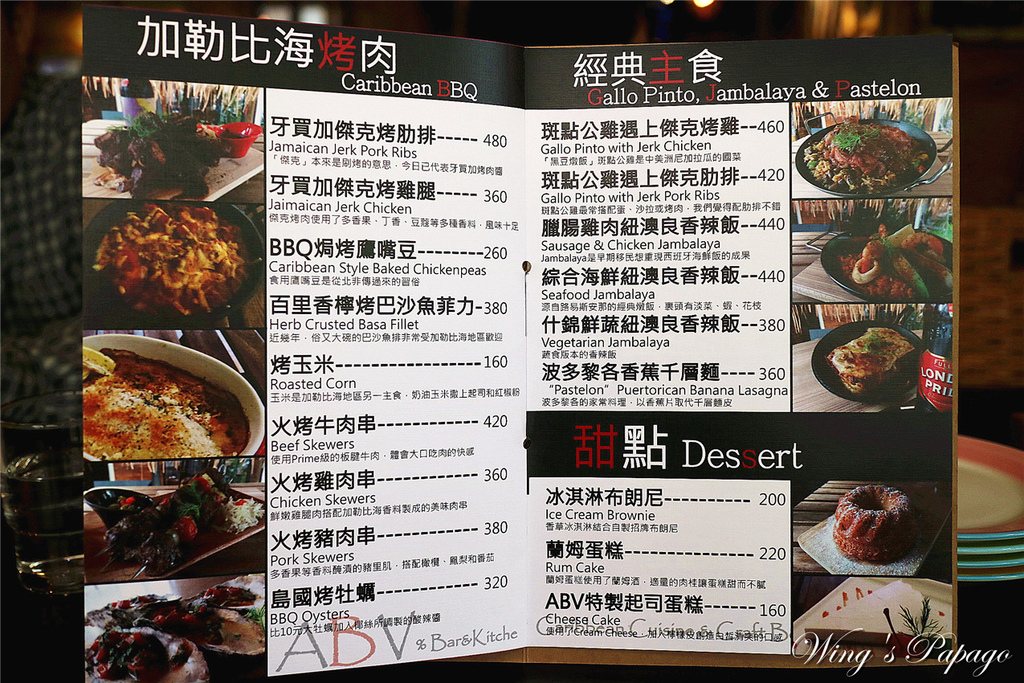 加勒比海烤肉
Caribbean BBQ
牙買加傑克烤肋排----- 480
Jamaican Jerk Pork Ribs
「傑克」本來是刷烤的意思，今日已代表牙買加烤肉醬
牙買加傑克烤雞腿----- 360
Jaimaican Jerk Chicken
傑克烤肉使用了多香果、丁香、豆蔻等多種香料，風味十足
BBQ焗烤鷹嘴豆---------260
Caribbean Style Baked Chickenpeas
食用鷹嘴豆是從北非傳過來的習俗
百里香檸烤巴沙魚菲力-380
Herb Crusted Basa Fillet
近幾年，俗又大碗的巴沙魚排非常受加勒比海地區歡迎
烤玉米----------------160
Roasted Corn
玉米是加勒比海地區另一主食，奶油玉米撒上起司和紅椒粉
火烤牛肉串------------ 420
Beef Skewers
使用Prime級的板腱牛肉，體會大口吃肉的快感
火烤雞肉串------------ 360
Chicken Skewers
鮮嫩雞腿肉搭配加勒比海香料製成的美味肉串
火烤豬肉串------------ 380
Pork Skewers
多香果等香料醃漬的豬里肌，搭配橄欖、鳳梨和番茄
島國烤牡蠣------------ 320
BBQ Oysters
比10元大牡蠣加入椰絲所調製的酸辣醬
ABV
Bar&Kitche
經典主食
Gallo Pinto, Jambalaya & Pastelon
斑點公雞遇上傑克烤雞--460
Gallo Pinto with Jerk Chicken
「黑豆燉飯」斑點公雞是中美洲尼加拉瓜的國菜
斑點公雞遇上傑克肋排--420
Gallo Pinto with Jerk Pork Ribs
斑點公雞最常搭配蛋、沙拉或烤肉，我們覺得配肋排不錯
臘腸雞肉紐澳良香辣飯--440
Sausage & Chicken Jambalaya
Jambalaya是早期移民想重現西班牙海鮮飯的成果
綜合海鮮紐澳良香辣飯--440
Seafood Jambalaya
源自路易斯安那的經典燉飯，裏頭有淡菜、蝦、花枝
什錦鮮蔬紐澳良香辣飯--380
Vegetarian Jambalaya
蔬食版本的香辣飯
波多黎各香蕉千層麵----- 360
“Pastelon” Puertorican Banana Lasagna
波多黎各的家常料理，以香蕉片取代千層麵皮
甜點 Dessert
冰淇淋布朗尼----------- 200
Ice Cream Brownie
香草冰淇淋結合自製招牌布朗尼
蘭姆蛋糕--------------- 220
Rum Cake
蘭姆蛋糕使用了蘭姆酒，適量的肉桂讓蛋糕甜而不膩
ABV特製起司蛋糕------- 160
Cheese Cake
使用了Cream Cheese，加入檸檬皮創造白皙滑爽的口感
Caribbean Cuisine & Craft B
LOND
PRID
Wing's Papago